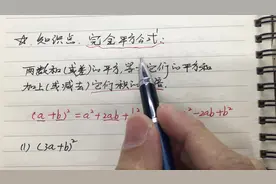 ☆ 知识点:完全平方公式:
两数和(或差)的平方,等于它们的平方和
加上(或减去)它们积的
(a+b)² = a²+2ab+b² a²-2ab+b²
(1) (3a+b)²